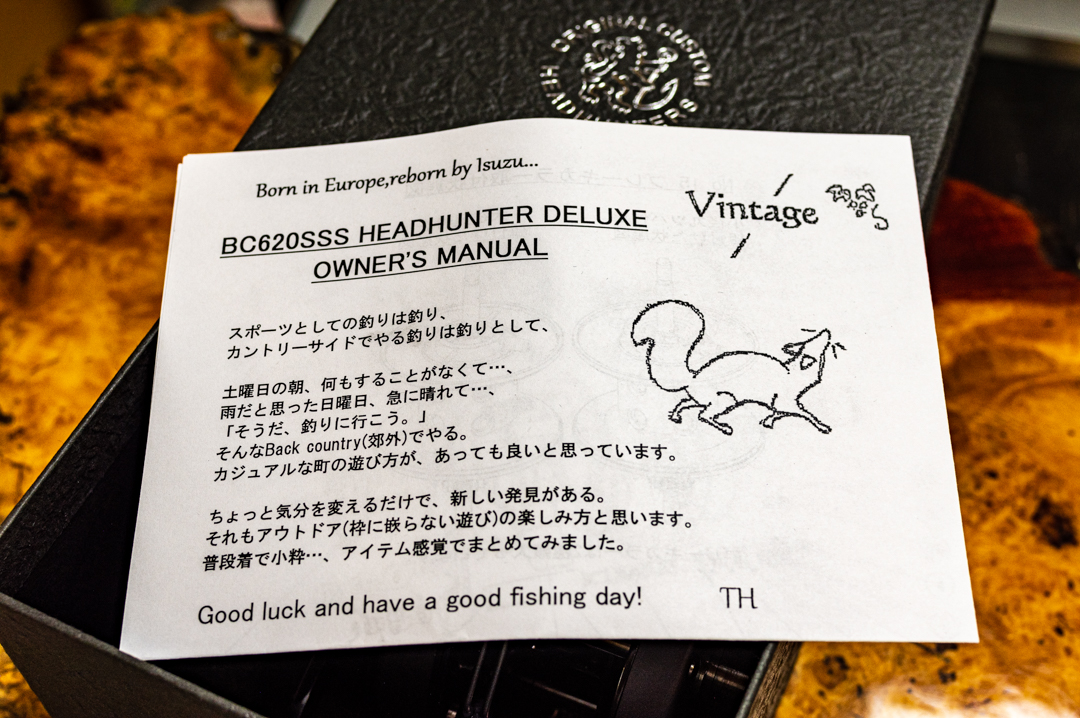 ORIGINAL CUSTOM
Born in Europe,reborn by Isuzu...
Vintage
BC620SSS HEADHUNTER DELUXE
OWNER'S MANUAL
スポーツとしての釣りは釣り、
カントリーサイドでやる釣りは釣りとして、
土曜日の朝、何もすることがなくて…、
雨だと思った日曜日、急に晴れて…、
「そうだ、釣りに行こう。」
そんなBack country(郊外)でやる。
カジュアルな町の遊び方が、あっても良いと思っています。
ちょっと気分を変えるだけで、新しい発見がある。
それもアウトドア(枠に嵌らない遊び)の楽しみ方と思います。
普段着で小粋…、アイテム感覚でまとめてみました。
Good luck and have a good fishing day!
TH